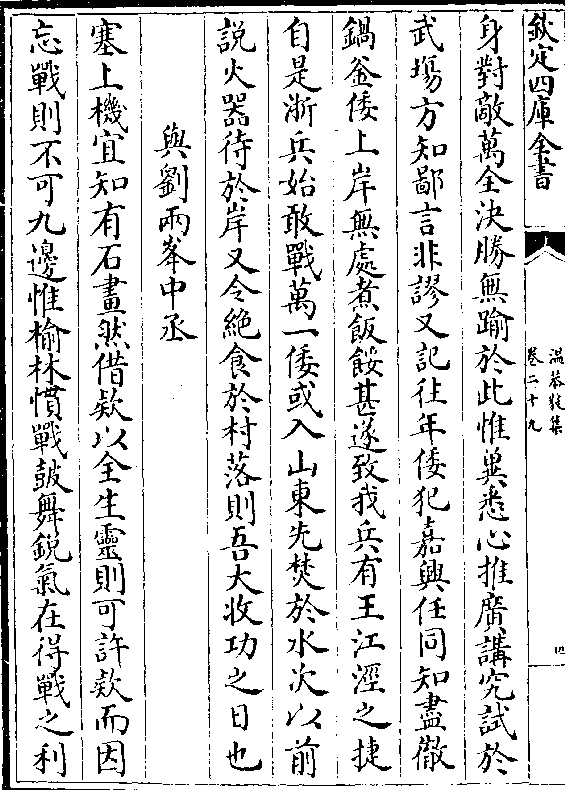 欽定四庫全書
溫恭毅集
卷二十九
四
身對敵萬全決勝無踰於此惟兾悉心推廣講究試於
武塲方知鄙言非謬又記往年倭犯嘉興任同知盡徹
鍋釜倭上岸無處煮飯餒甚遂致我兵有王江涇之捷
自是浙兵始敢戰萬一倭或入山東先焚於水次以前
説火器待於岸又令絶食於村落則吾大收功之日也
與劉兩峯中丞
塞上機宜知有石畫然借欵以全生靈則可許欵而因
忘戰則不可九邊惟榆林慣戰鼓舞鋭氣在得戰之利